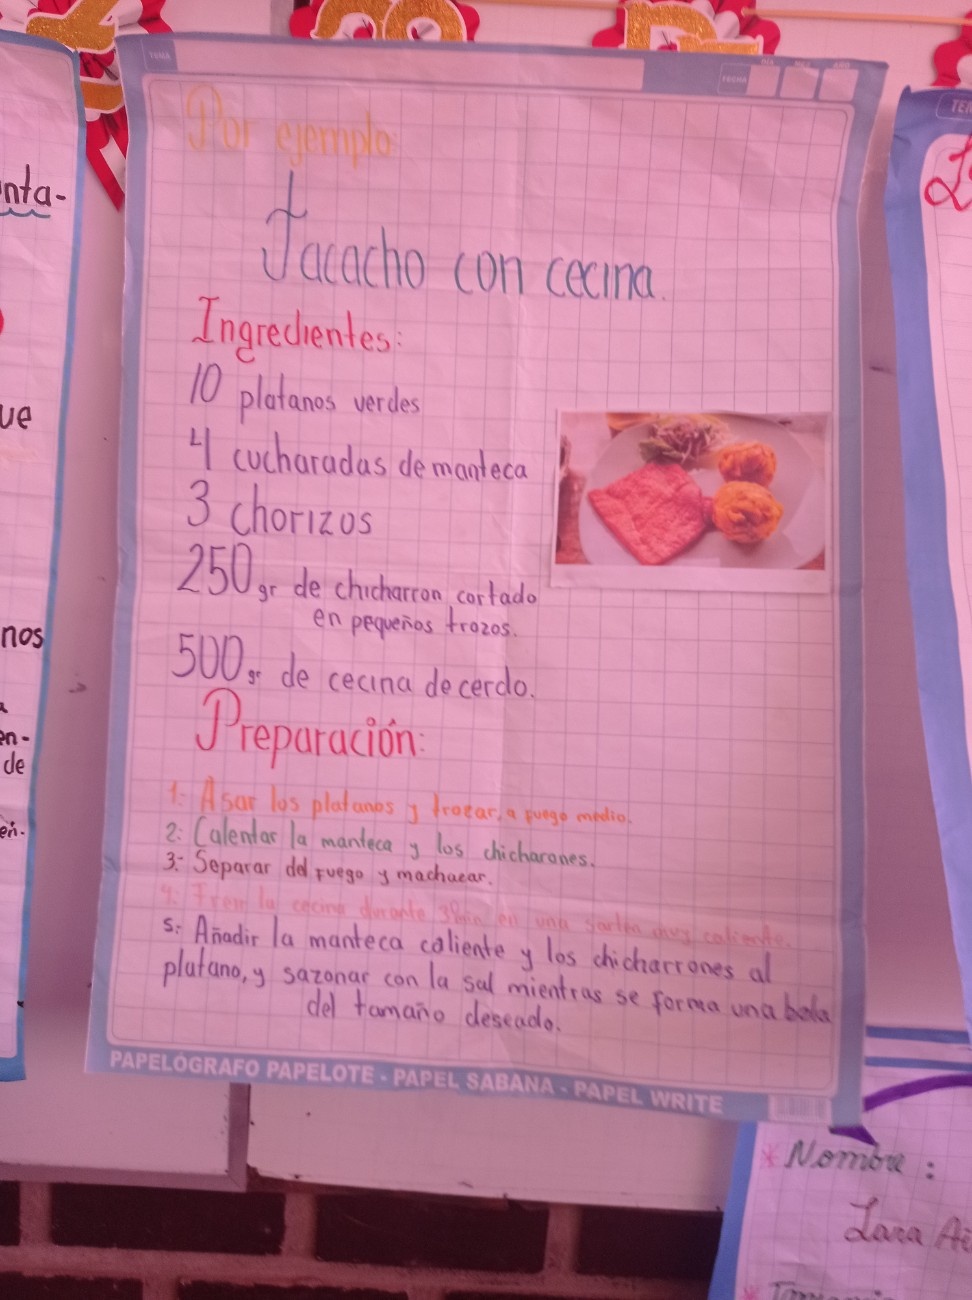 TEMA
FECHA
Por ejemplo:
Tacacho con cecina.
Ingredientes:
10 platanos verdes
4 cucharadas de manteca
3 chorizos
250 gr de chicharron cortado
en pequeños trozos.
500 gr de cecina de cerdo.
Preparación:
1: Asar los platanos y trozar, a fuego medio.
2: Calentar la manteca y los chicharones.
3: Separar del fuego y machacar.
4: Freír la cecina durante en una sartén muy caliente.
5: Añadir la manteca caliente y los chicharrones al
platano, y sazonar con la sal mientras se forma una bola
del tamaño deseado.
PAPELÓGRAFO PAPELOTE - PAPEL SABANA - PAPEL WRITE
nta-
ue
nos
en-
de
en.
Nombre:
Lara